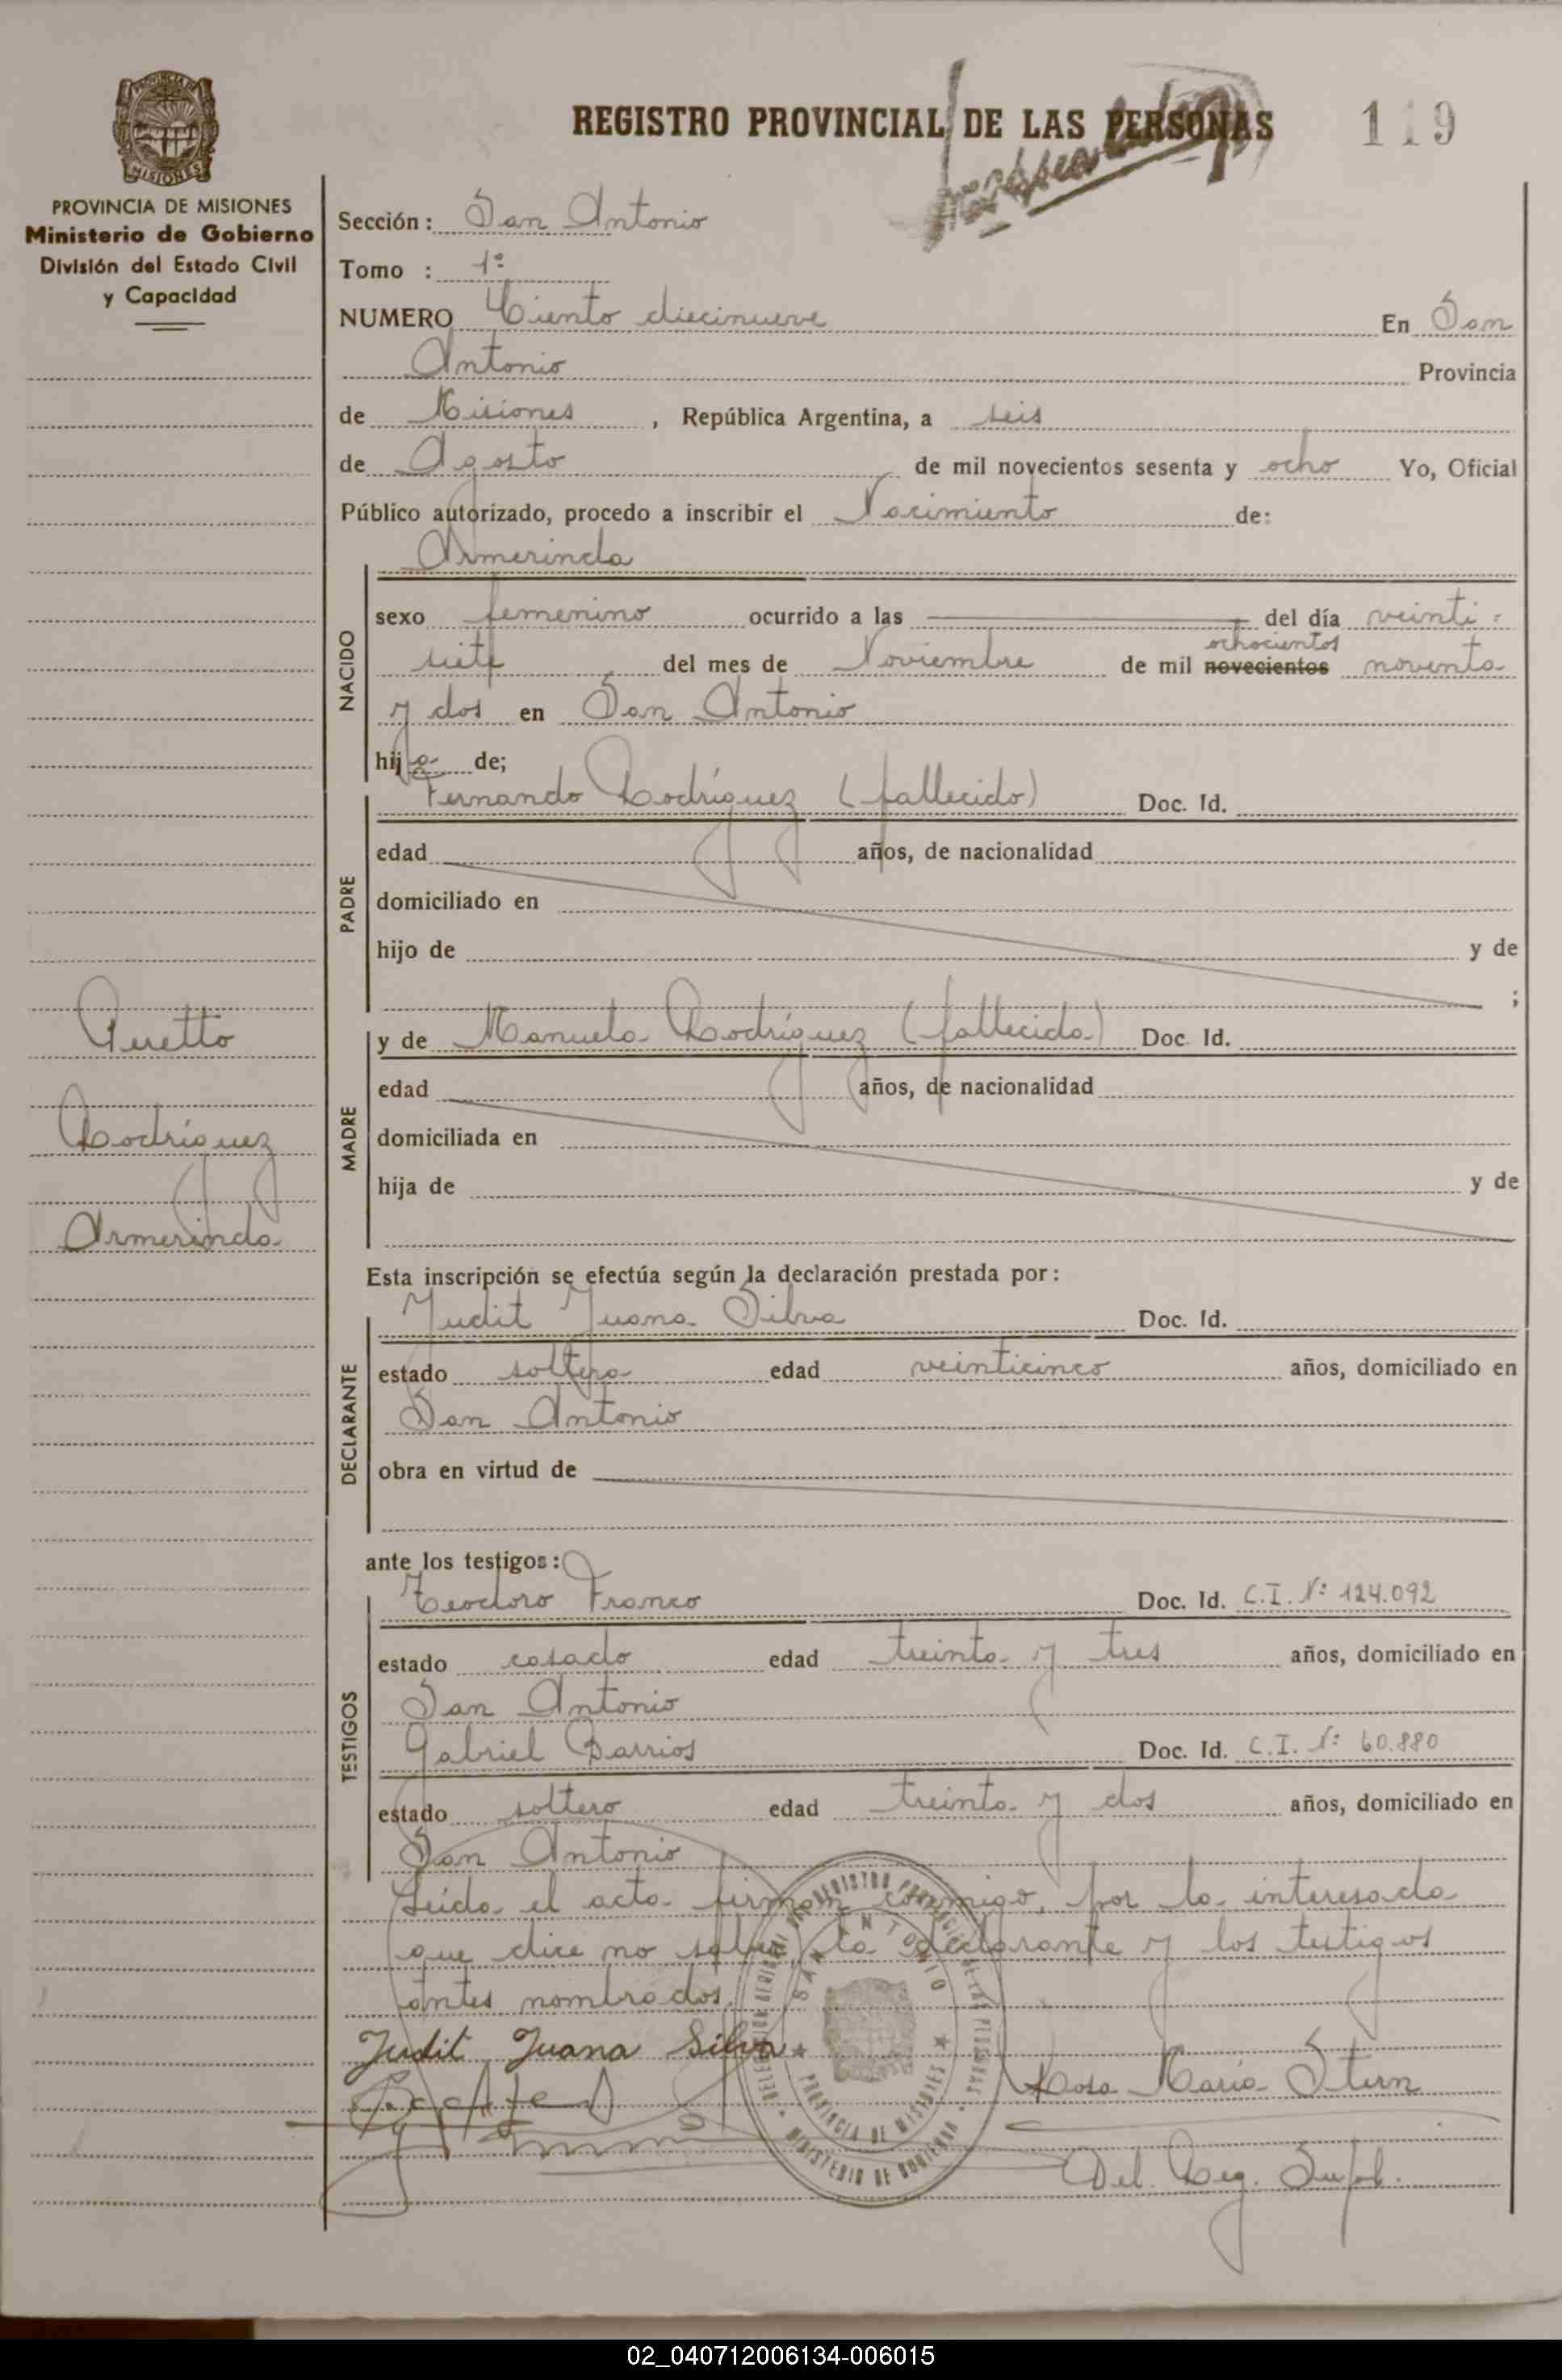 REGISTRO PROVINCIAL DE LAS PERSONAS
119
MISIONES
PROVINCIA DE MISIONES
Ministerio de Gobierno
División del Estado Civil
y Capacidad
Sección: San Antonio
Tomo : 1º
NUMERO Ciento diecinueve En San
Antonio Provincia
de Misiones, República Argentina, a seis
de Agosto de mil novecientos sesenta y ocho Yo, Oficial
Público autorizado, procedo a inscribir el Nacimiento de:
Armerinda
NACIDO
sexo femenino ocurrido a las del día veinti-
ochocientos
siete del mes de Noviembre de mil novecientos noventa
y dos en San Antonio
hija de;
PADRE
Fernando Rodríguez (fallecido) Doc. Id.
edad años, de nacionalidad
domiciliado en
hijo de y de
;
MADRE
y de Manuela Rodríguez (fallecida) Doc. Id.
edad años, de nacionalidad
domiciliada en
hija de y de
Rodríguez
Armerinda
Esta inscripción se efectúa según la declaración prestada por:
DECLARANTE
Judit Juana Silva Doc. Id.
estado soltera edad veinticinco años, domiciliado en
San Antonio
obra en virtud de
ante los testigos:
TESTIGOS
Teodoro Franco Doc. Id. C.I. Nº 124.092
estado casado edad treinta y tres años, domiciliado en
San Antonio
Gabriel Barrios Doc. Id. C.I. Nº 60.880
estado soltero edad treinta y dos años, domiciliado en
San Antonio
Leída el acta firman conmigo, por la interesada
que dice no saber, la declarante y los testigos
antes nombrados.
Judit Juana Silva
Rosa María Stern
SAN ANTONIO
PROVINCIA DE MISIONES
MINISTERIO DE GOBIERNO
02_040712006134-006015